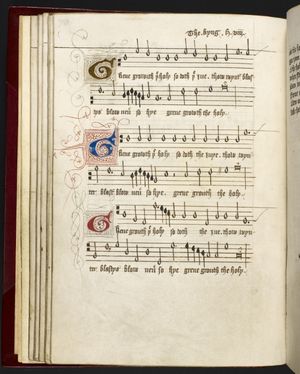 The kyng . h . viij .
Grene growith þe holy so doth þe iue . thow wynter blas
tys blow neuer so hye grene growth the holy .
Grene growith þe holy so doth the iuye . thow wyn
ter blast blow neuer so hye . grene growth the holy .
Grene growith þe holy so doth the iuye . thow wyn
ter blastys blow neuer so hye grene growth the holy .